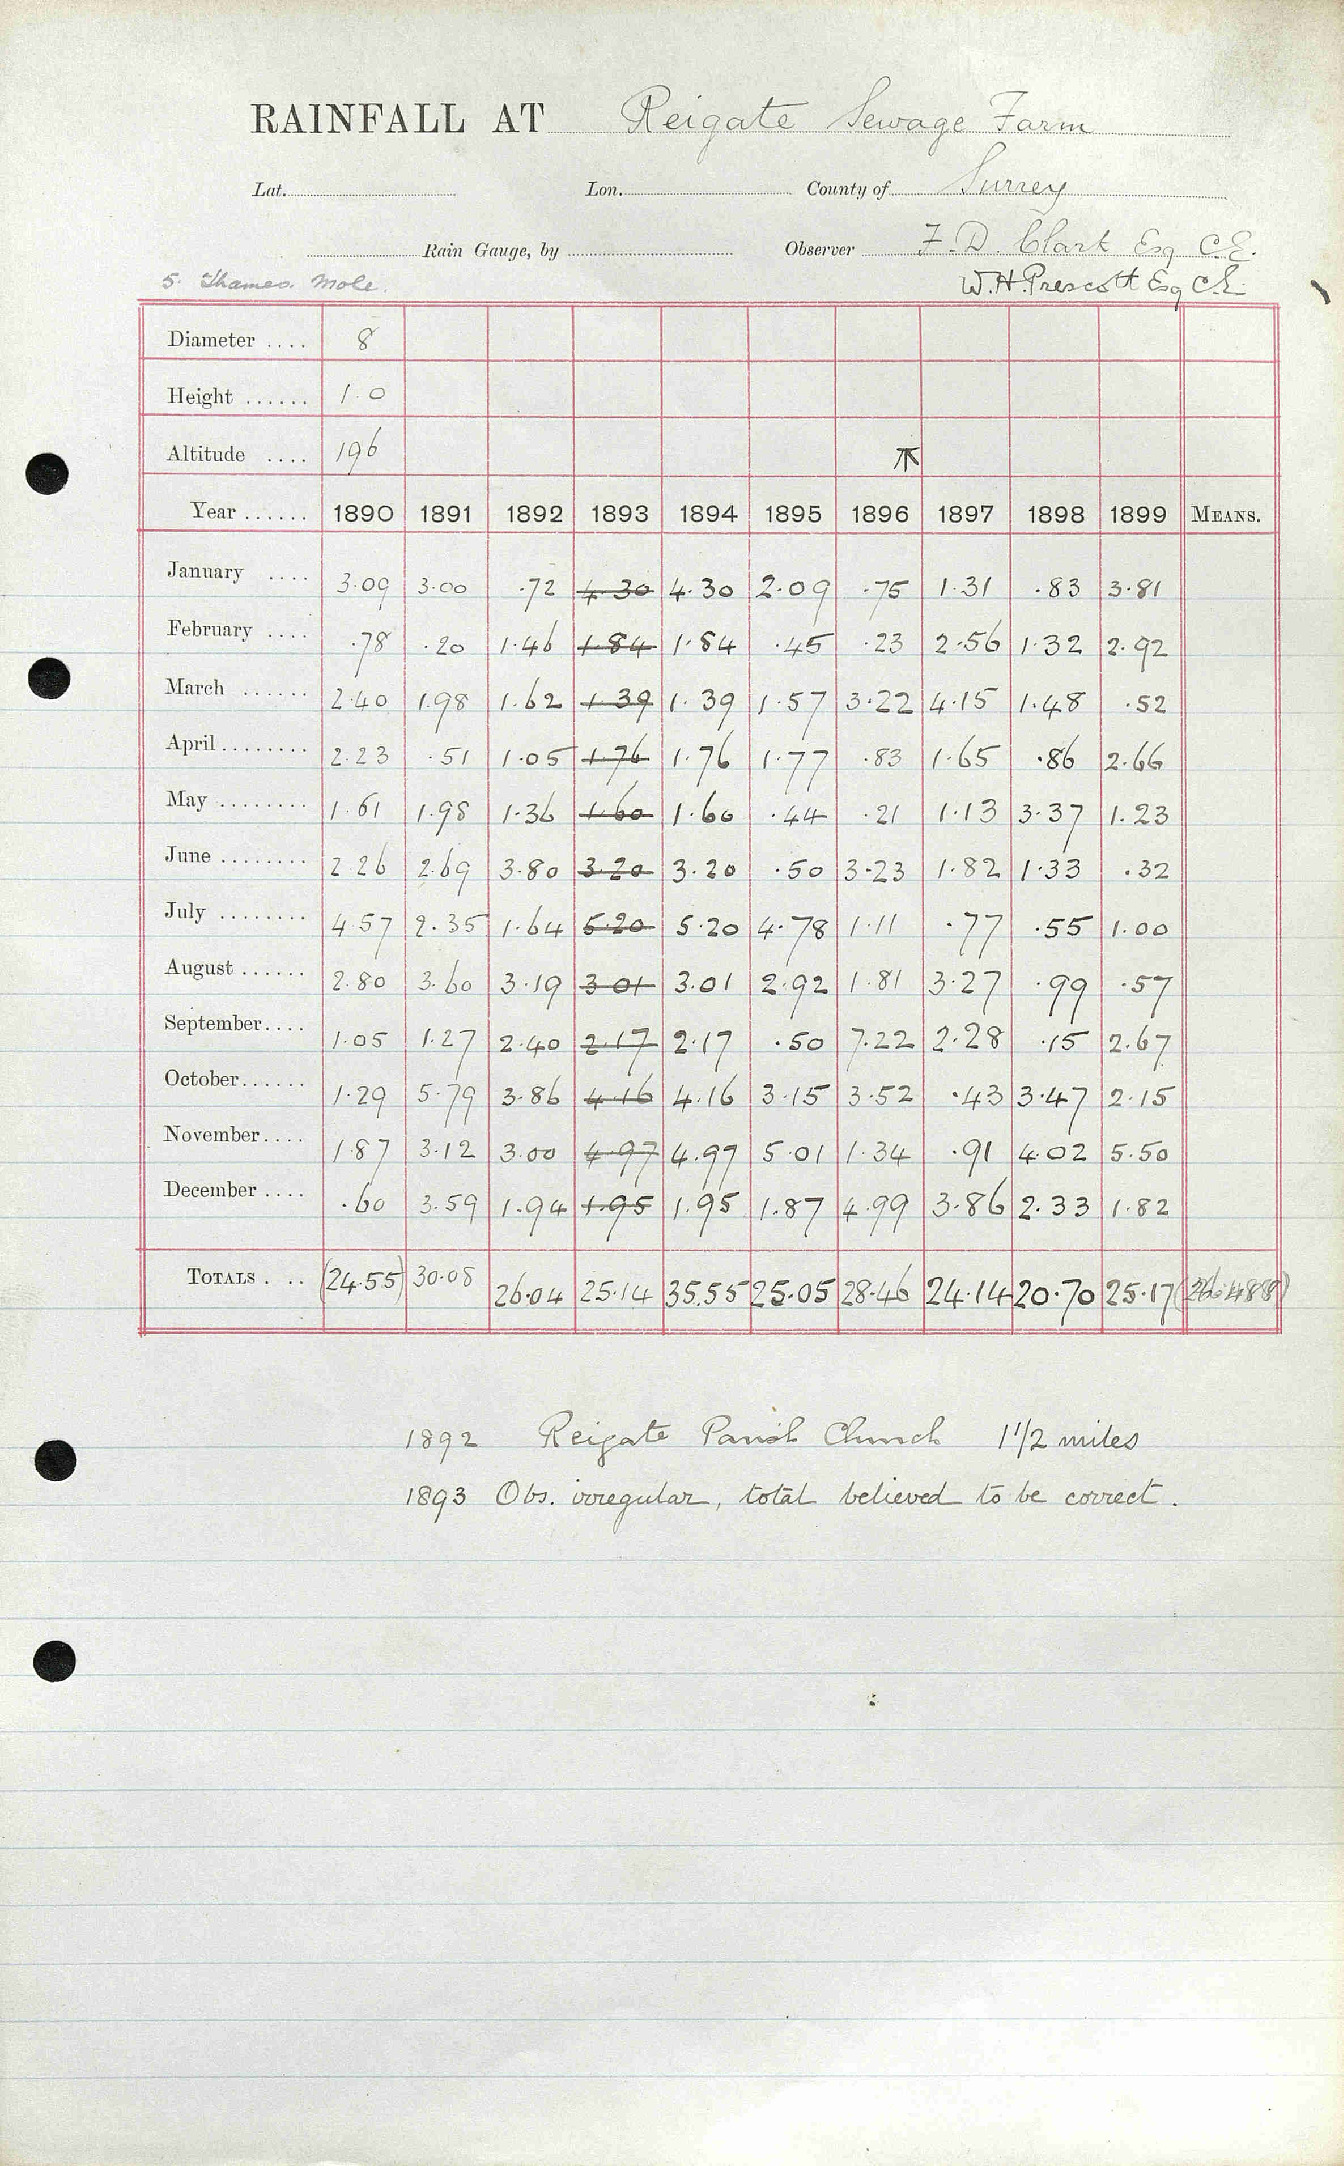 RAINFALL AT Reigate Sewage Farm
Lat. Lon. County of Surrey
Rain Gauge, by Observer F. D. Clark Esq C.E.
5. Thames. Mole. W. H. Prescott Esq C.E.
Diameter .... 8
Height ...... 1.0
Altitude .... 196
Year ...... 1890 1891 1892 1893 1894 1895 1896 1897 1898 1899 MEANS.
January .... 3.09 3.00 .72 4.30 4.30 2.09 .75 1.31 .83 3.81
February .... .78 .20 1.46 1.84 1.84 .45 .23 2.56 1.32 2.92
March ...... 2.40 1.98 1.62 1.39 1.39 1.57 3.22 4.15 1.48 .52
April ........ 2.23 .51 1.05 1.76 1.76 1.77 .83 1.65 .86 2.66
May ........ 1.61 1.98 1.36 1.60 1.60 .44 .21 1.13 3.37 1.23
June ........ 2.26 2.69 3.80 3.20 3.20 .50 3.23 1.82 1.33 .32
July ........ 4.57 2.35 1.64 5.20 5.20 4.78 1.11 .77 .55 1.00
August ...... 2.80 3.60 3.19 3.01 3.01 2.92 1.81 3.27 .99 .57
September .... 1.05 1.27 2.40 2.17 2.17 .50 7.22 2.28 .15 2.67
October ...... 1.29 5.79 3.86 4.16 4.16 3.15 3.52 .43 3.47 2.15
November .... 1.87 3.12 3.00 4.97 4.97 5.01 1.34 .91 4.02 5.50
December .... .60 3.59 1.94 1.95 1.95 1.87 4.99 3.86 2.33 1.82
TOTALS . .. (24.55) 30.08 26.04 25.14 35.55 25.05 28.46 24.14 20.70 25.17 (26.488)
1892 Reigate Parish Church 1 1/2 miles
1893 Obs. irregular, total believed to be correct.